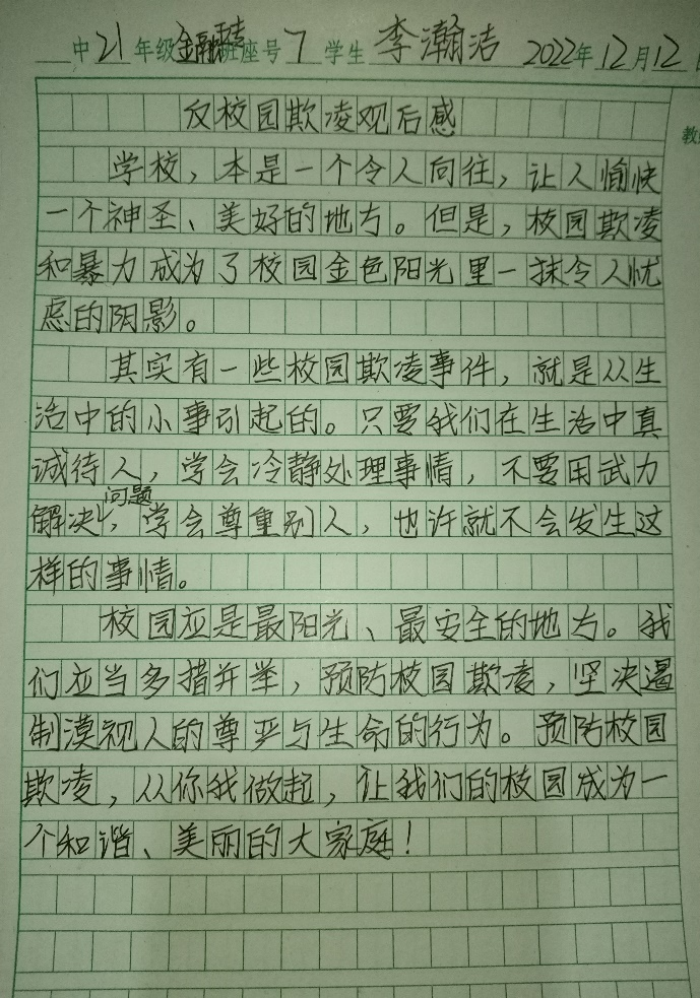 中21年级金融班座号7学生李瀚洁2022年12月12日
反校园欺凌观后感
教
学校，本是一个令人向往，让人愉快
一个神圣、美好的地方。但是，校园欺凌
和暴力成为了校园金色阳光里一抹令人忧
虑的阴影。
其实有一些校园欺凌事件，就是从生
活中的小事引起的。只要我们在生活中真
诚待人，学会冷静处理事情，不要用武力
解决问题，学会尊重别人，也许就不会发生这
样的事情。
校园应是最阳光、最安全的地方。我
们应当多措并举，预防校园欺凌，坚决遏
制漠视人的尊严与生命的行为。预防校园
欺凌，从你我做起，让我们的校园成为一
个和谐、美丽的大家庭！